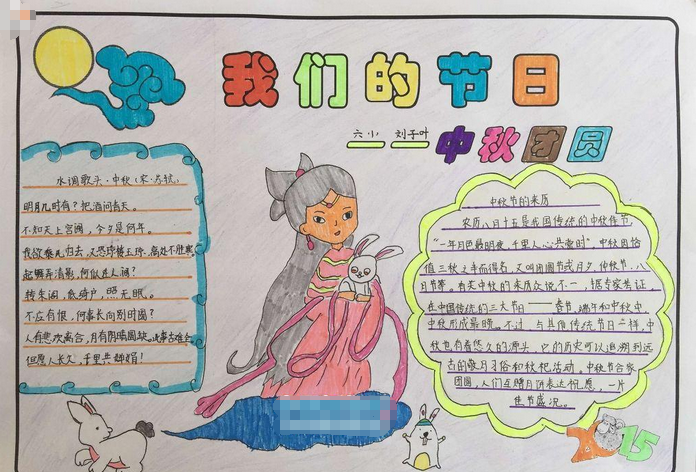 我们的节日
六小 刘子叶
中秋团圆
水调歌头·中秋(宋·苏轼)
明月几时有?把酒问青天。
不知天上宫阙,今夕是何年。
我欲乘风归去,又恐琼楼玉宇,高处不胜寒
起舞弄清影,何似在人间?
转朱阁,低绮户,照无眠。
不应有恨,何事长向别时圆?
人有悲欢离合,月有阴晴圆缺。此事古难全
但愿人长久,千里共婵娟!
中秋节的来历
农历八月十五是我国传统的中秋佳节,
“一年月色最明夜,千里人心共赏时”中秋因恰
值三秋之半而得名,又叫团圆节或月夕,仲秋节,八
月节等,有关中秋的来历众说不一,据专家考证,
在中国传统的三大节日——春节,端午和中秋中
中秋形成最晚。不过,与其他传统节日一样,中
秋也有着悠久的源头,它的历史可以追溯到远
古的敬月习俗和秋祀活动。中秋节合家
团圆,人们在赠月饼表达祝愿,一片
佳节盛况。
2015